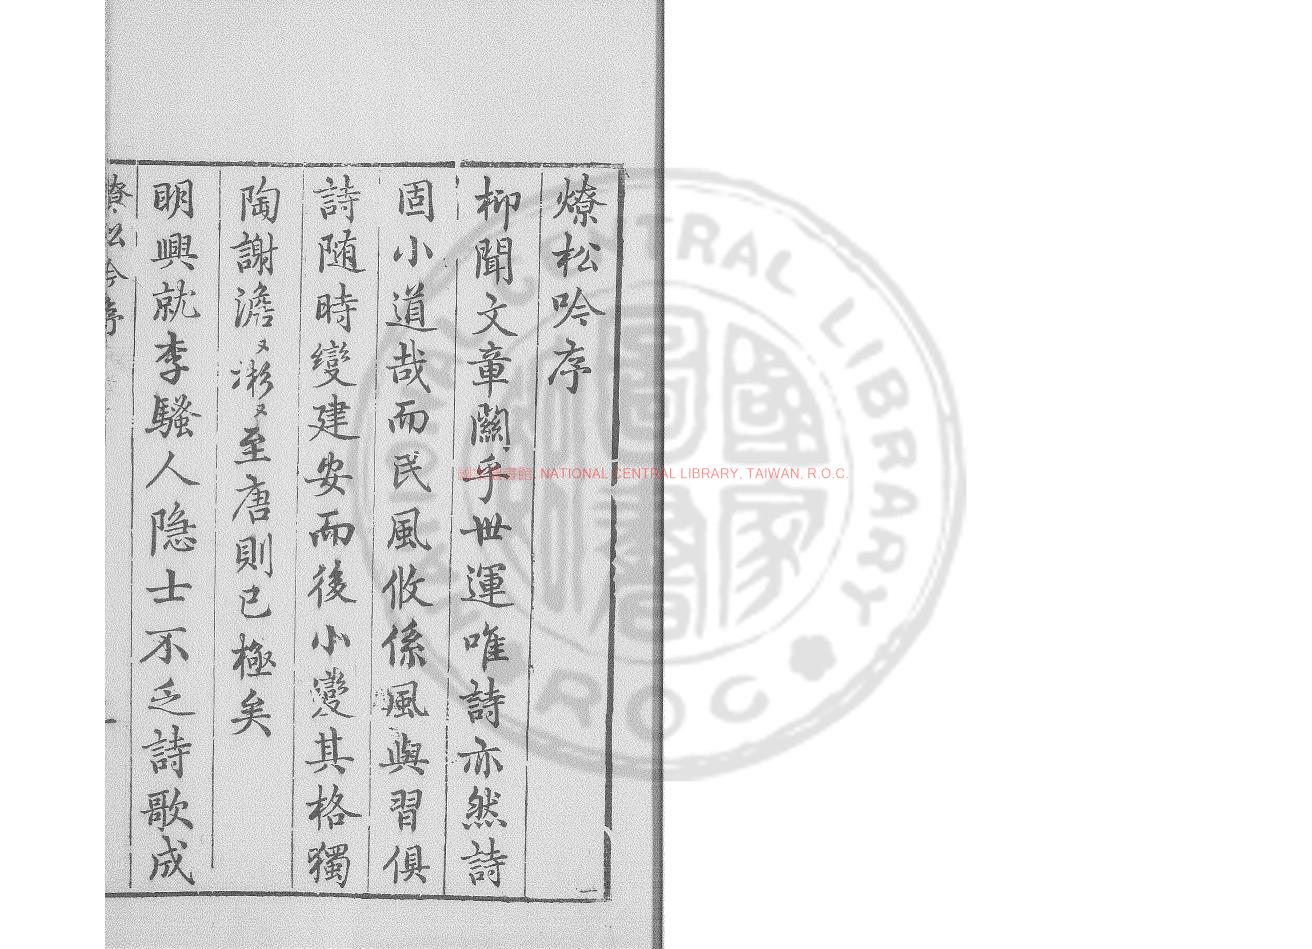 燎松吟序
柳聞文章關乎世運唯詩亦然詩
固小道哉而民風攸係風與習俱
詩随時變建安而後小變其格獨
陶謝澹〻漸〻至唐則已極矣
明興就李騷人隐士不乏詩歌成
燎松吟序
國家圖書館, NATIONAL CENTRAL LIBRARY, TAIWAN, R.O.C.